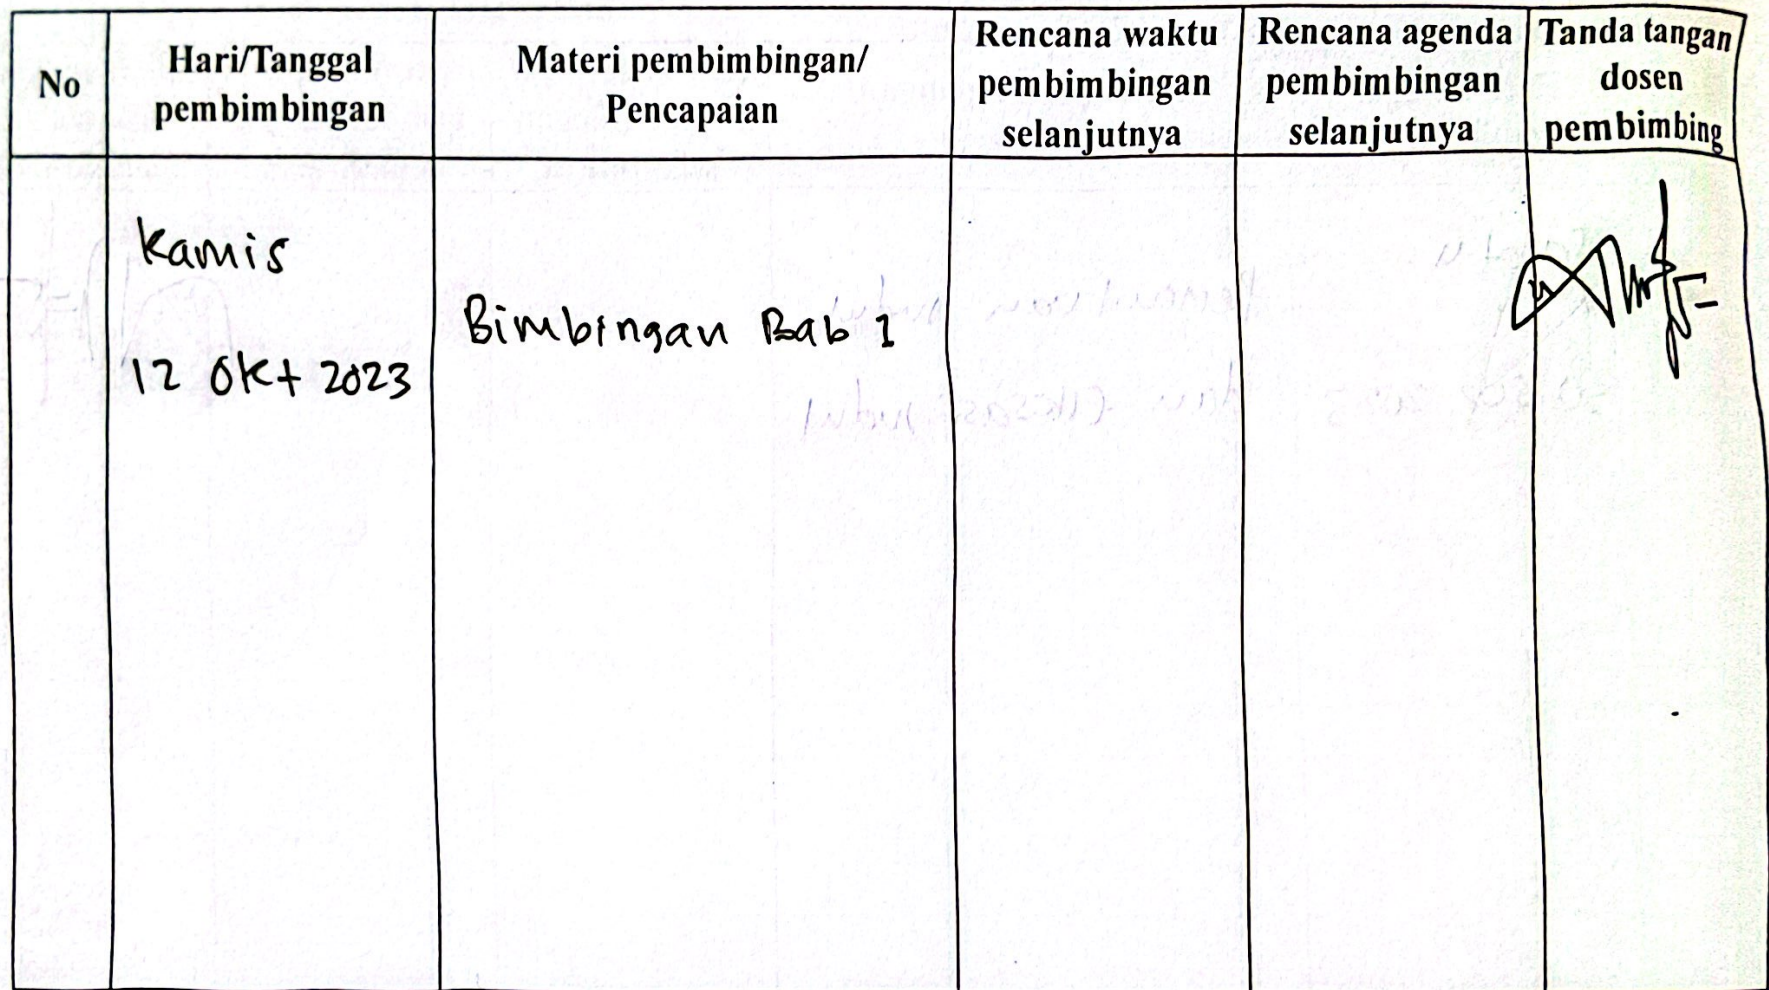 No
Hari/Tanggal
pembimbingan
Materi pembimbingan/
Pencapaian
Rencana waktu
pembimbingan
selanjutnya
Rencana agenda
pembimbingan
selanjutnya
Tanda tangan
dosen
pembimbing
Kamis
12 Okt 2023
Bimbingan Bab 1